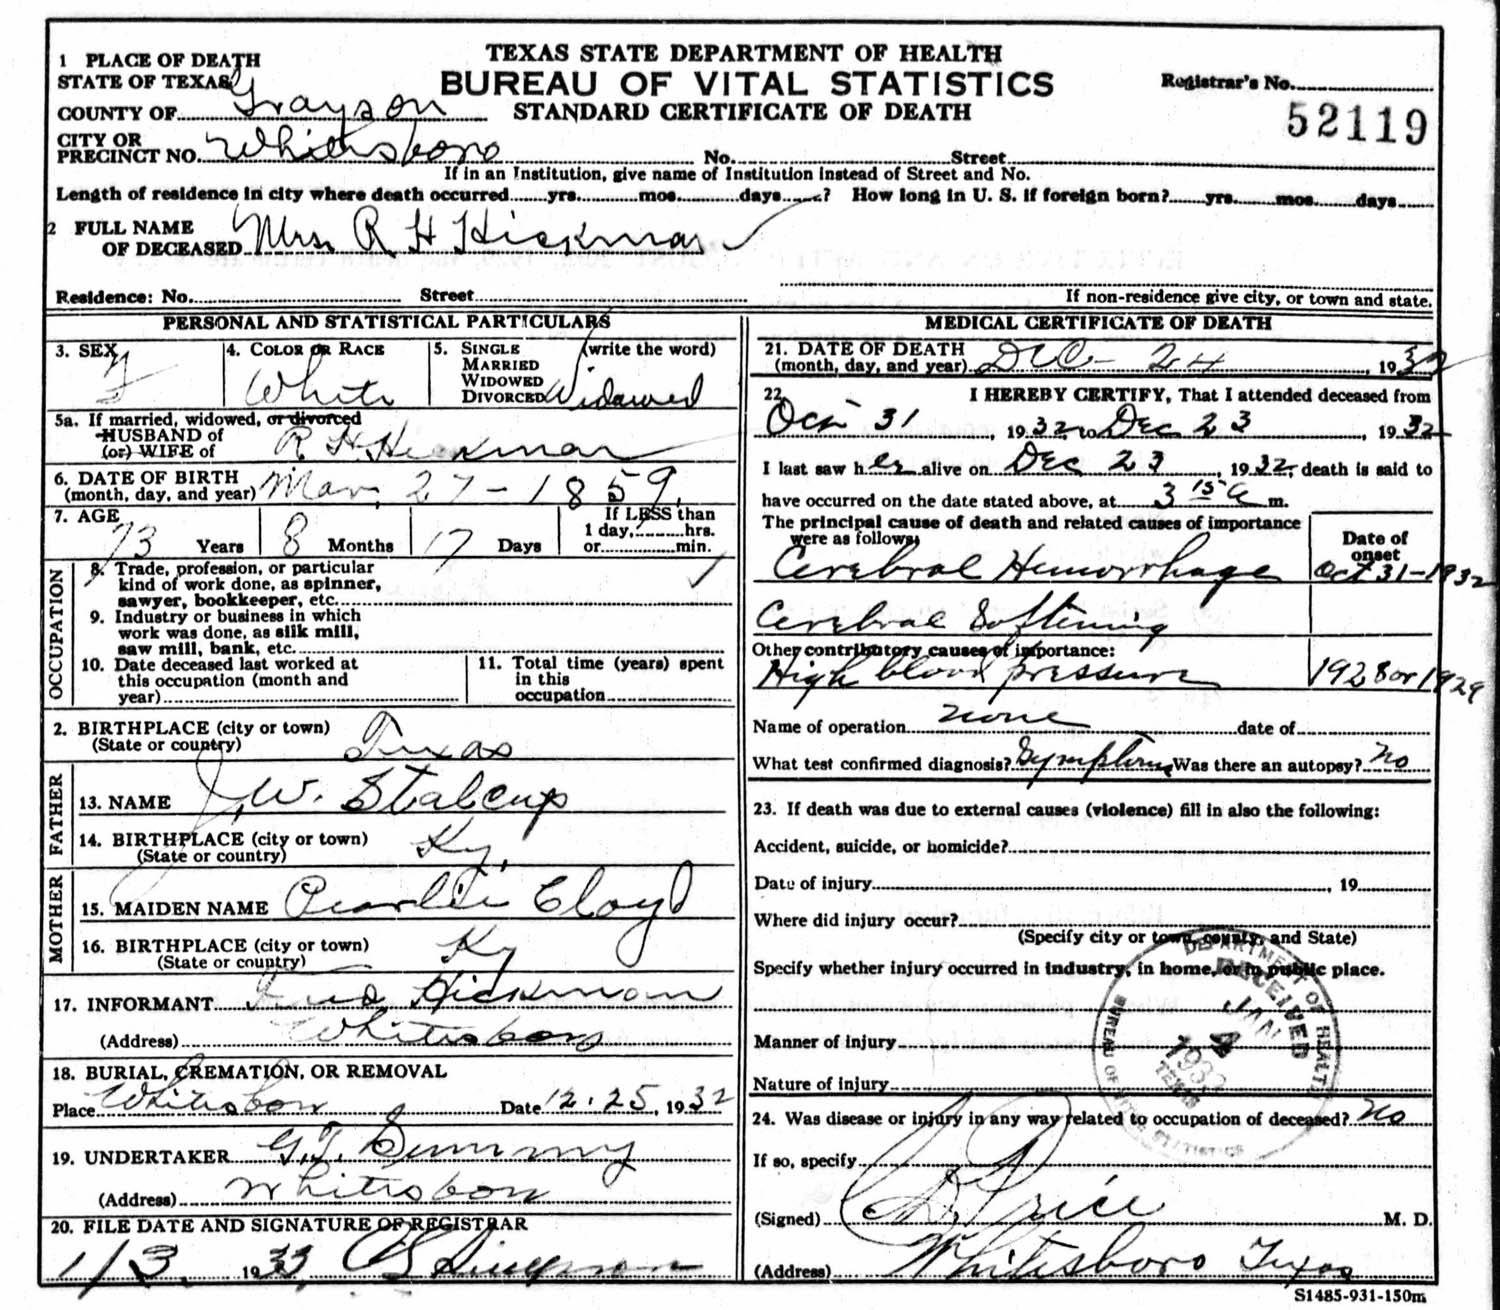 TEXAS STATE DEPARTMENT OF HEALTH
BUREAU OF VITAL STATISTICS
STANDARD CERTIFICATE OF DEATH
1 PLACE OF DEATH
STATE OF TEXAS
COUNTY OF Grayson
CITY OR
PRECINCT NO. Whitesboro No. Street
Registrar's No.
52119
If in an Institution, give name of Institution instead of Street and No.
Length of residence in city where death occurred yrs. mos. days ? How long in U. S. if foreign born? yrs. mos. days
2 FULL NAME
OF DECEASED Mrs. R H Hickman
Residence: No. Street
If non-residence give city, or town and state.
PERSONAL AND STATISTICAL PARTICULARS
3. SEX F
4. COLOR OR RACE White
5. SINGLE (write the word)
MARRIED
WIDOWED
DIVORCED Widowed
5a. If married, widowed, or divorced
HUSBAND of
(or) WIFE of R. H. Hickman
6. DATE OF BIRTH
(month, day, and year) Mar, 27 - 1859.
7. AGE 73 Years 8 Months 17 Days
If LESS than
1 day, hrs.
or min.
OCCUPATION
8. Trade, profession, or particular
kind of work done, as spinner,
sawyer, bookkeeper, etc.
9. Industry or business in which
work was done, as silk mill,
saw mill, bank, etc.
10. Date deceased last worked at
this occupation (month and
year)
11. Total time (years) spent
in this
occupation
2. BIRTHPLACE (city or town)
(State or country) Texas
FATHER
13. NAME J. W. Stalcup
14. BIRTHPLACE (city or town)
(State or country) Ky.
MOTHER
15. MAIDEN NAME Pearlie Cloyd
16. BIRTHPLACE (city or town)
(State or country) Ky
17. INFORMANT Hickman
(Address) Whitesboro
18. BURIAL, CREMATION, OR REMOVAL
Place Whitesboro Date 12.25, 1932
19. UNDERTAKER G.T. Summy
(Address) Whitesboro
20. FILE DATE AND SIGNATURE OF REGISTRAR
1/3. 1933
MEDICAL CERTIFICATE OF DEATH
21. DATE OF DEATH
(month, day, and year) Dec - 24, 1932
22. I HEREBY CERTIFY, That I attended deceased from
Oct 31, 1932, to Dec 23, 1932
I last saw her alive on Dec 23, 1932, death is said to
have occurred on the date stated above, at 3 15 a m.
The principal cause of death and related causes of importance
were as follows:
Date of
onset
Cerebral Hemorrhage Oct 31-1932
Cerebral Softening
Other contributory causes of importance:
High blood pressure 1928 or 1929
Name of operation none date of
What test confirmed diagnosis? Symptoms Was there an autopsy? no
23. If death was due to external causes (violence) fill in also the following:
Accident, suicide, or homicide?
Date of injury , 19
Where did injury occur?
(Specify city or town, county, and State)
Specify whether injury occurred in industry, in home, or in public place.
Manner of injury
Nature of injury
DEPARTMENT OF HEALTH
RECEIVED
JAN
4
TEXAS
BUREAU OF VITAL STATISTICS
24. Was disease or injury in any way related to occupation of deceased? no
If so, specify
(Signed) Price M. D.
(Address) Whitesboro Texas
S1485-931-150m